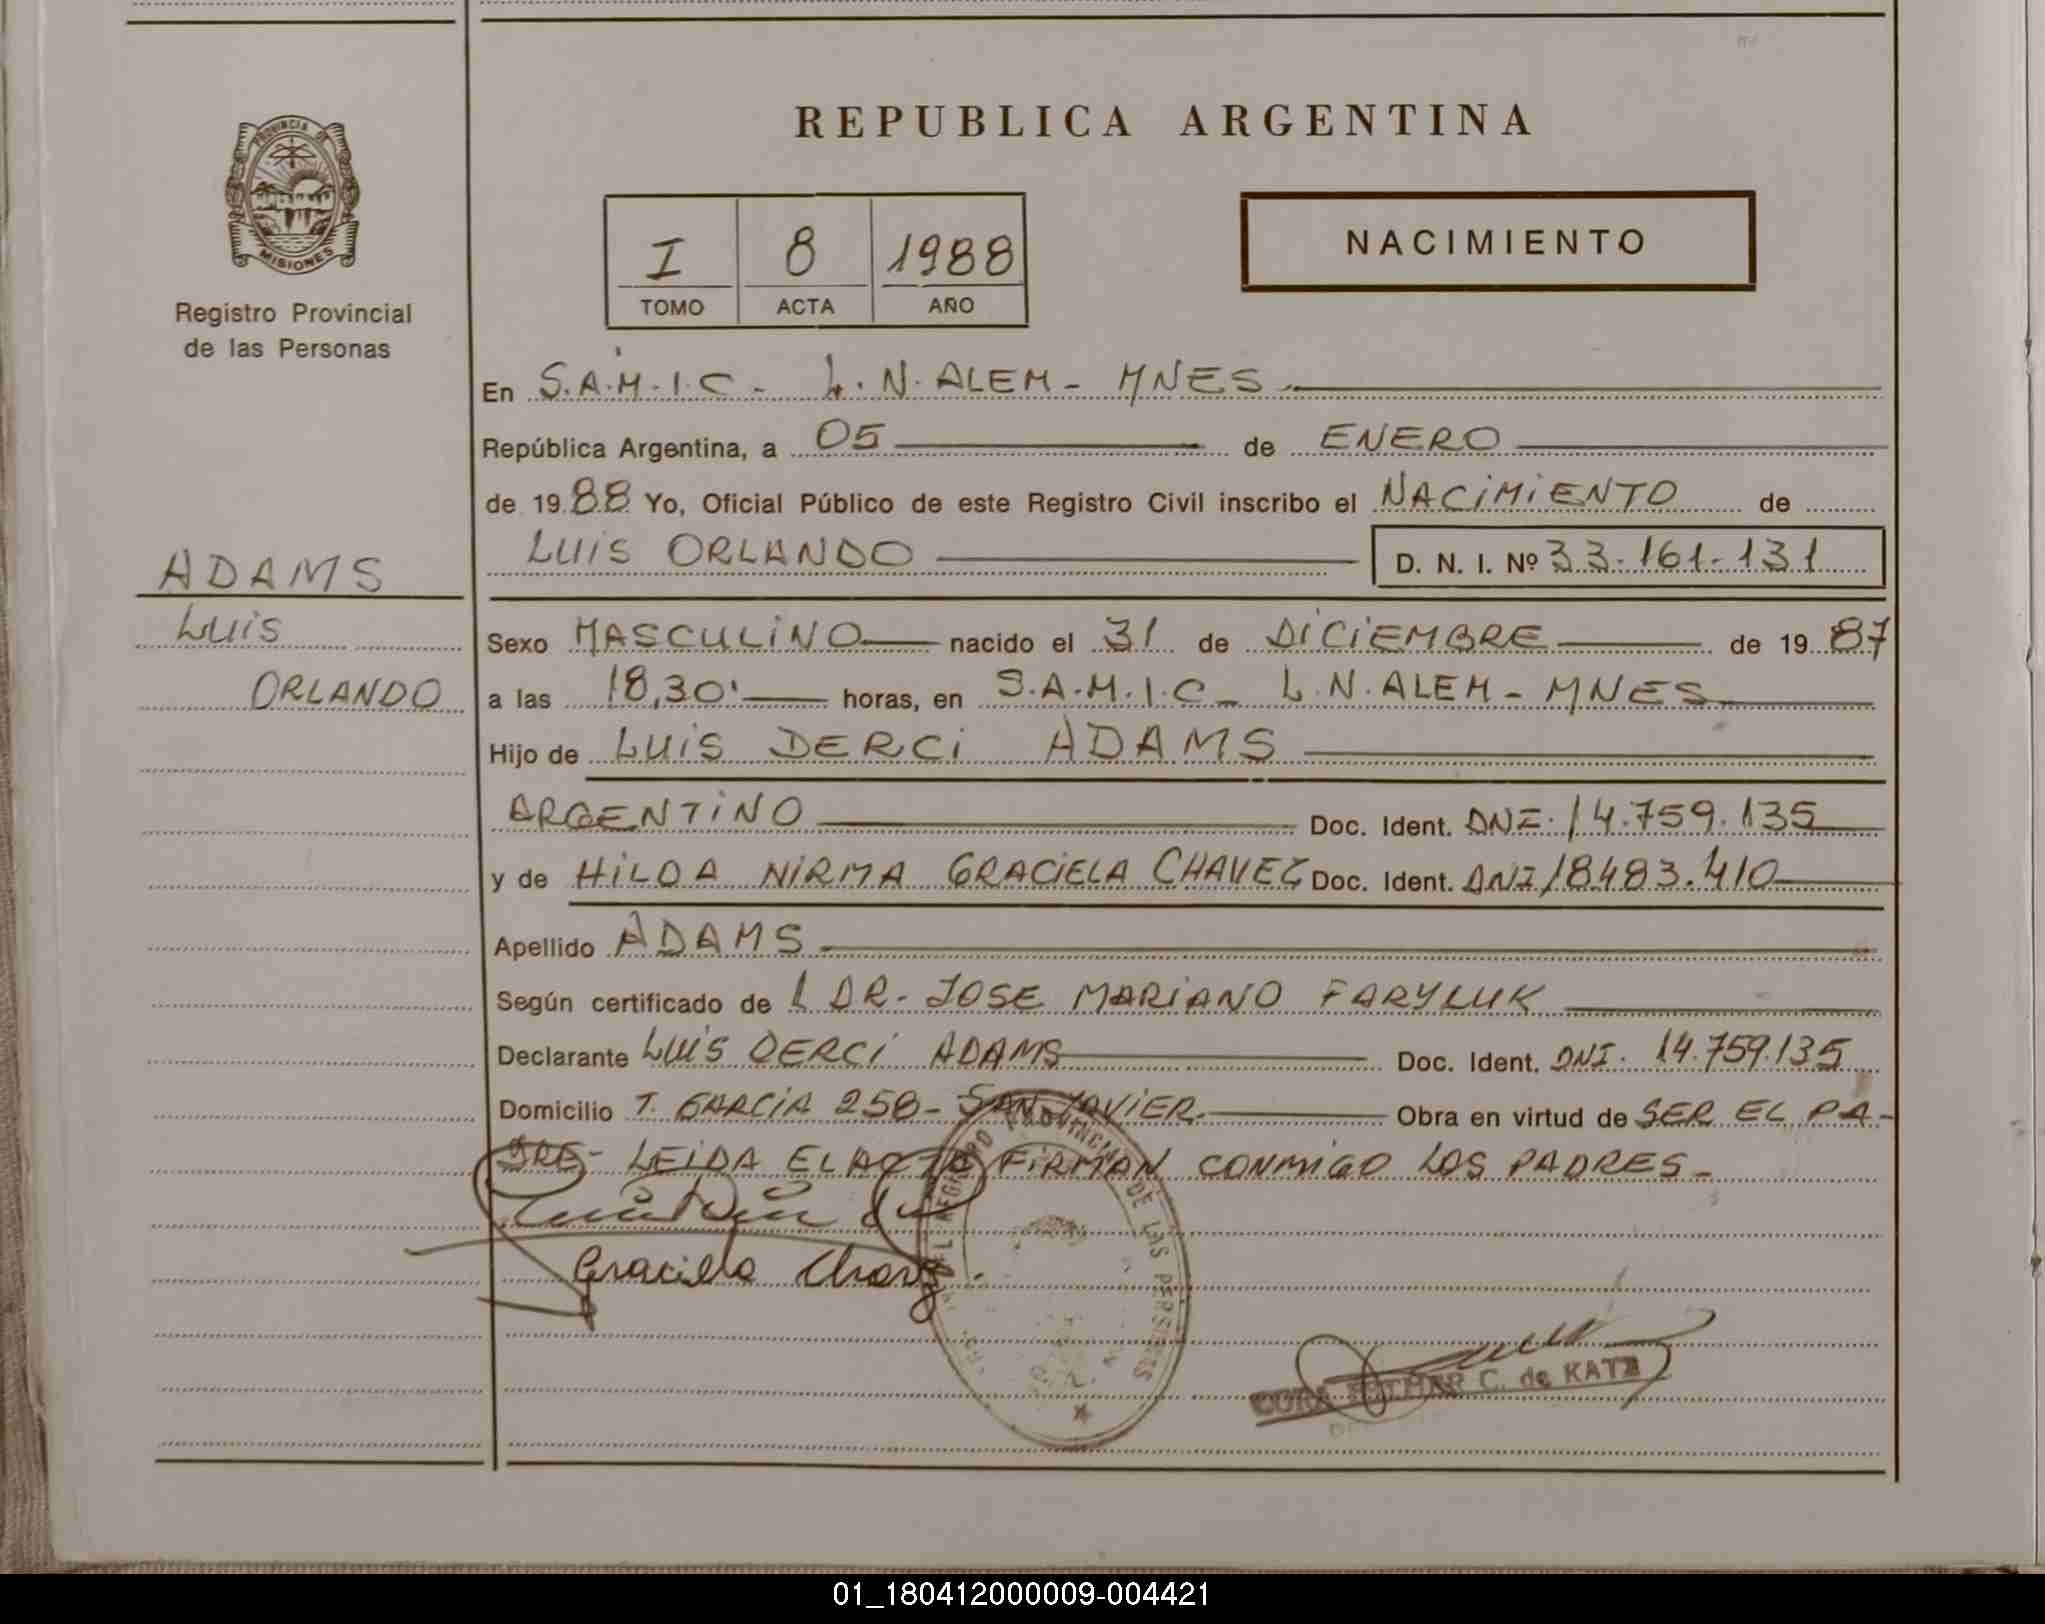 PROVINCIA DE
MISIONES
Registro Provincial
de las Personas
ADAMS
LUIS
ORLANDO
REPUBLICA ARGENTINA
I 8 1988
TOMO ACTA AÑO
NACIMIENTO
En S.A.M.I.C - L.N. ALEM - MNES
República Argentina, a 05 de ENERO
de 1988 Yo, Oficial Público de este Registro Civil inscribo el NACIMIENTO de
LUIS ORLANDO D. N. I. Nº 33.161.131
Sexo MASCULINO nacido el 31 de DICIEMBRE de 1987
a las 18,30' horas, en S.A.M.I.C - L.N. ALEM - MNES
Hijo de LUIS DERCI ADAMS
ARGENTINO Doc. Ident. DNI. 14.759.135
y de HILDA NIRMA GRACIELA CHAVEZ Doc. Ident. DNI 18483.410
Apellido ADAMS
Según certificado de L DR. JOSE MARIANO FARYLUK
Declarante LUIS DERCI ADAMS Doc. Ident. DNI. 14.759.135
Domicilio T. GARCIA 258 - SAN JAVIER. Obra en virtud de SER EL PA-
DRE - LEIDA EL ACTA FIRMAN CONMIGO LOS PADRES -
Graciela Chavez.
REGISTRO PROVINCIAL DE LAS PERSONAS
C. de KATZ
01_180412000009-004421